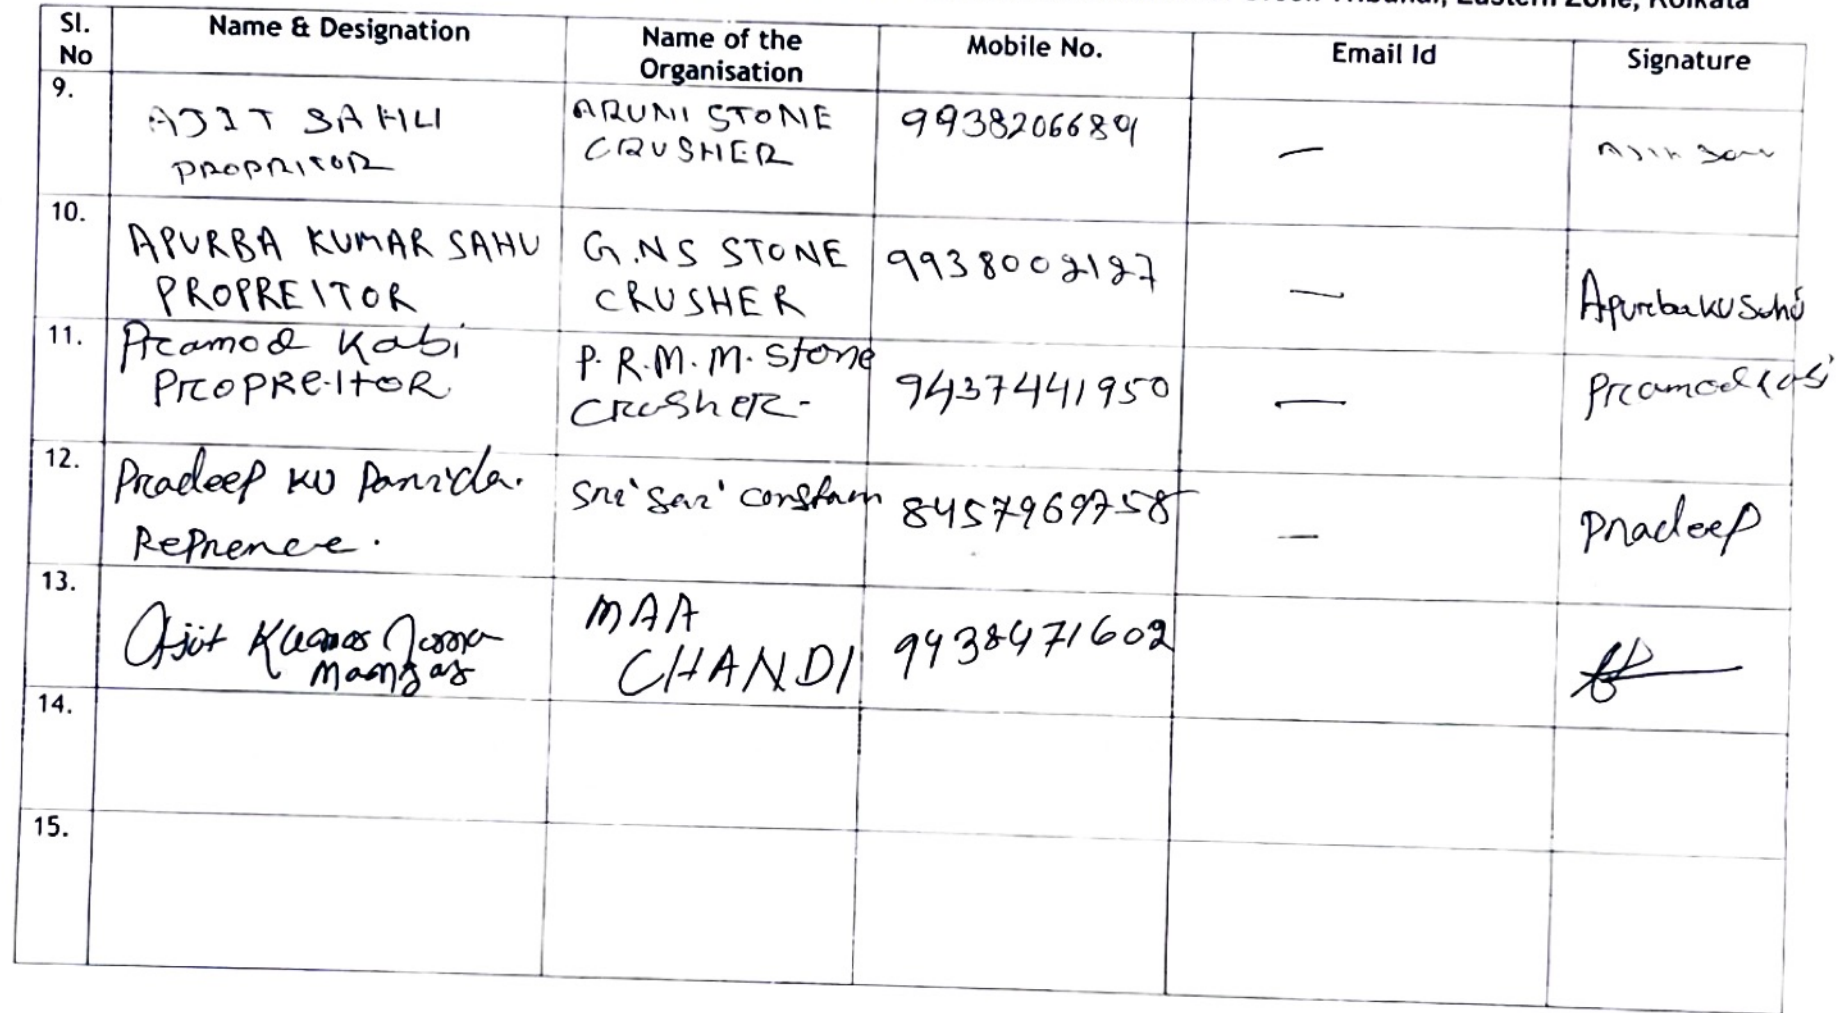 Tribunal, Eastern Zone, Kolkata
Sl. No Name & Designation Name of the Organisation Mobile No. Email Id Signature
9.
AJIT SAHU
PROPRITOR
ARUNI STONE
CRUSHER
9938206689
—
10.
APURBA KUMAR SAHU
PROPREITOR
G.NS STONE
CRUSHER
9938002127
—
Apurba KU Sahu
11.
Pramod Kabi
PROPREITOR
P.R.M.M. Stone
CRUSHER-
9437441950
—
Pramod Kabi
12.
Pradeep KU Parida.
Reprence.
Sri Sai constan
8457969758
—
Pradeep
13.
Ajit Kumar Jena
Manger
MAA
CHANDI
9438471602
14.
15.